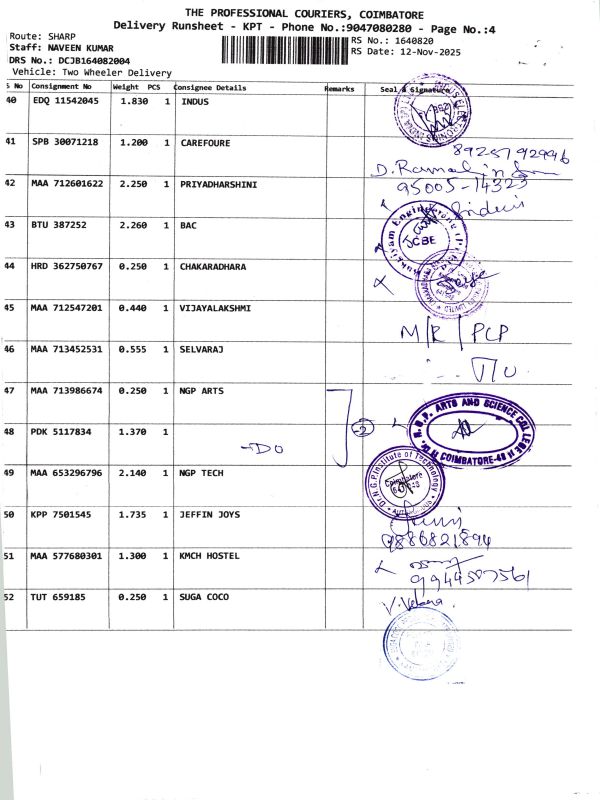 THE PROFESSIONAL COURIERS, COIMBATORE
Delivery Runsheet - KPT - Phone No.:9047080280 - Page No.:4
Route: SHARP
Staff: NAVEEN KUMAR
DRS No.: DCJB164082004
Vehicle: Two Wheeler Delivery
RS No.: 1640820
RS Date: 12-Nov-2025
S No Consignment No Weight PCS Consignee Details Remarks Seal & Signature
40 EDQ 11542045 1.830 1 INDUS
41 SPB 30071218 1.200 1 CAREFOURE
D.
42 MAA 712601622 2.250 1 PRIYADHARSHINI 95005-14323
43 BTU 387252 2.260 1 BAC
CBE
44 HRD 362750767 0.250 1 CHAKARADHARA
45 MAA 712547201 0.440 1 VIJAYALAKSHMI M/R / PCP
46 MAA 713452531 0.555 1 SELVARAJ
47 MAA 713986674 0.250 1 NGP ARTS
Dr. N.G.P. ARTS AND SCIENCE COLLEGE
COIMBATORE-48
48 PDK 5117834 1.370 1 -DO 2
49 MAA 653296796 2.140 1 NGP TECH
Dr. N.G.P. Institute of Technology
Coimbatore
50 KPP 7501545 1.735 1 JEFFIN JOYS
9886821894
51 MAA 577680301 1.300 1 KMCH HOSTEL
9944587561
52 TUT 659185 0.250 1 SUGA COCO